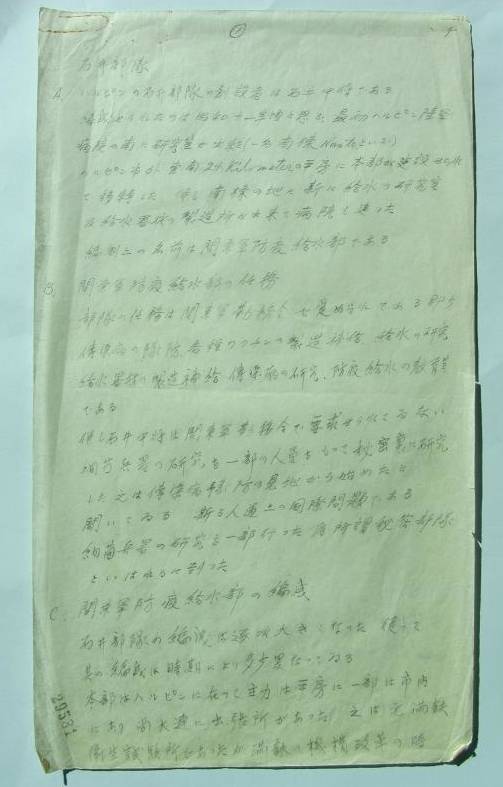 ①
石井部隊
A. ハルピンの石井部隊の創設者は石井中将である
編成せられたのは昭和十一年 最初ハルピン陸軍
病院の南に研究室 (一名南棟
ハルピン市 南24 Kilometerの平房に本部が建設せられ
て移転した 但し南棟の地に新に給水の研究室
及給水器材の製造所が出来て病院と
編制上の名前は関東軍防疫給水部である
B. 関東軍防疫給水部の任務
部隊の任務は関東軍勤務令 である 即ち
傳染病の予防 各種ワクチンの製造補給 給水の研究
給水器材の製造補給 傳染病の研究、防疫給水の教育等
である
但し石井中将は関東軍勤務令で要求せられてゐない
細菌兵器の研究を一部の人員をもって秘密裏に研究
した 之は傳染病予防の見地から始めたと
聞いてゐる 斯る人道上の国際問題である
細菌兵器の研究を一部行った為所謂秘密部隊
といはれるに到った
C. 関東軍防疫給水部の編成
石井部隊の編成は逐次大きくなった 従って
其の編成は時期により多少異なってゐる
本部はハルピンに在って主力は平房に一部は市内
にあり 尚大連に出張所があった 之は元満鉄
衛生試験所であったが満鉄の機構改革の時
29531